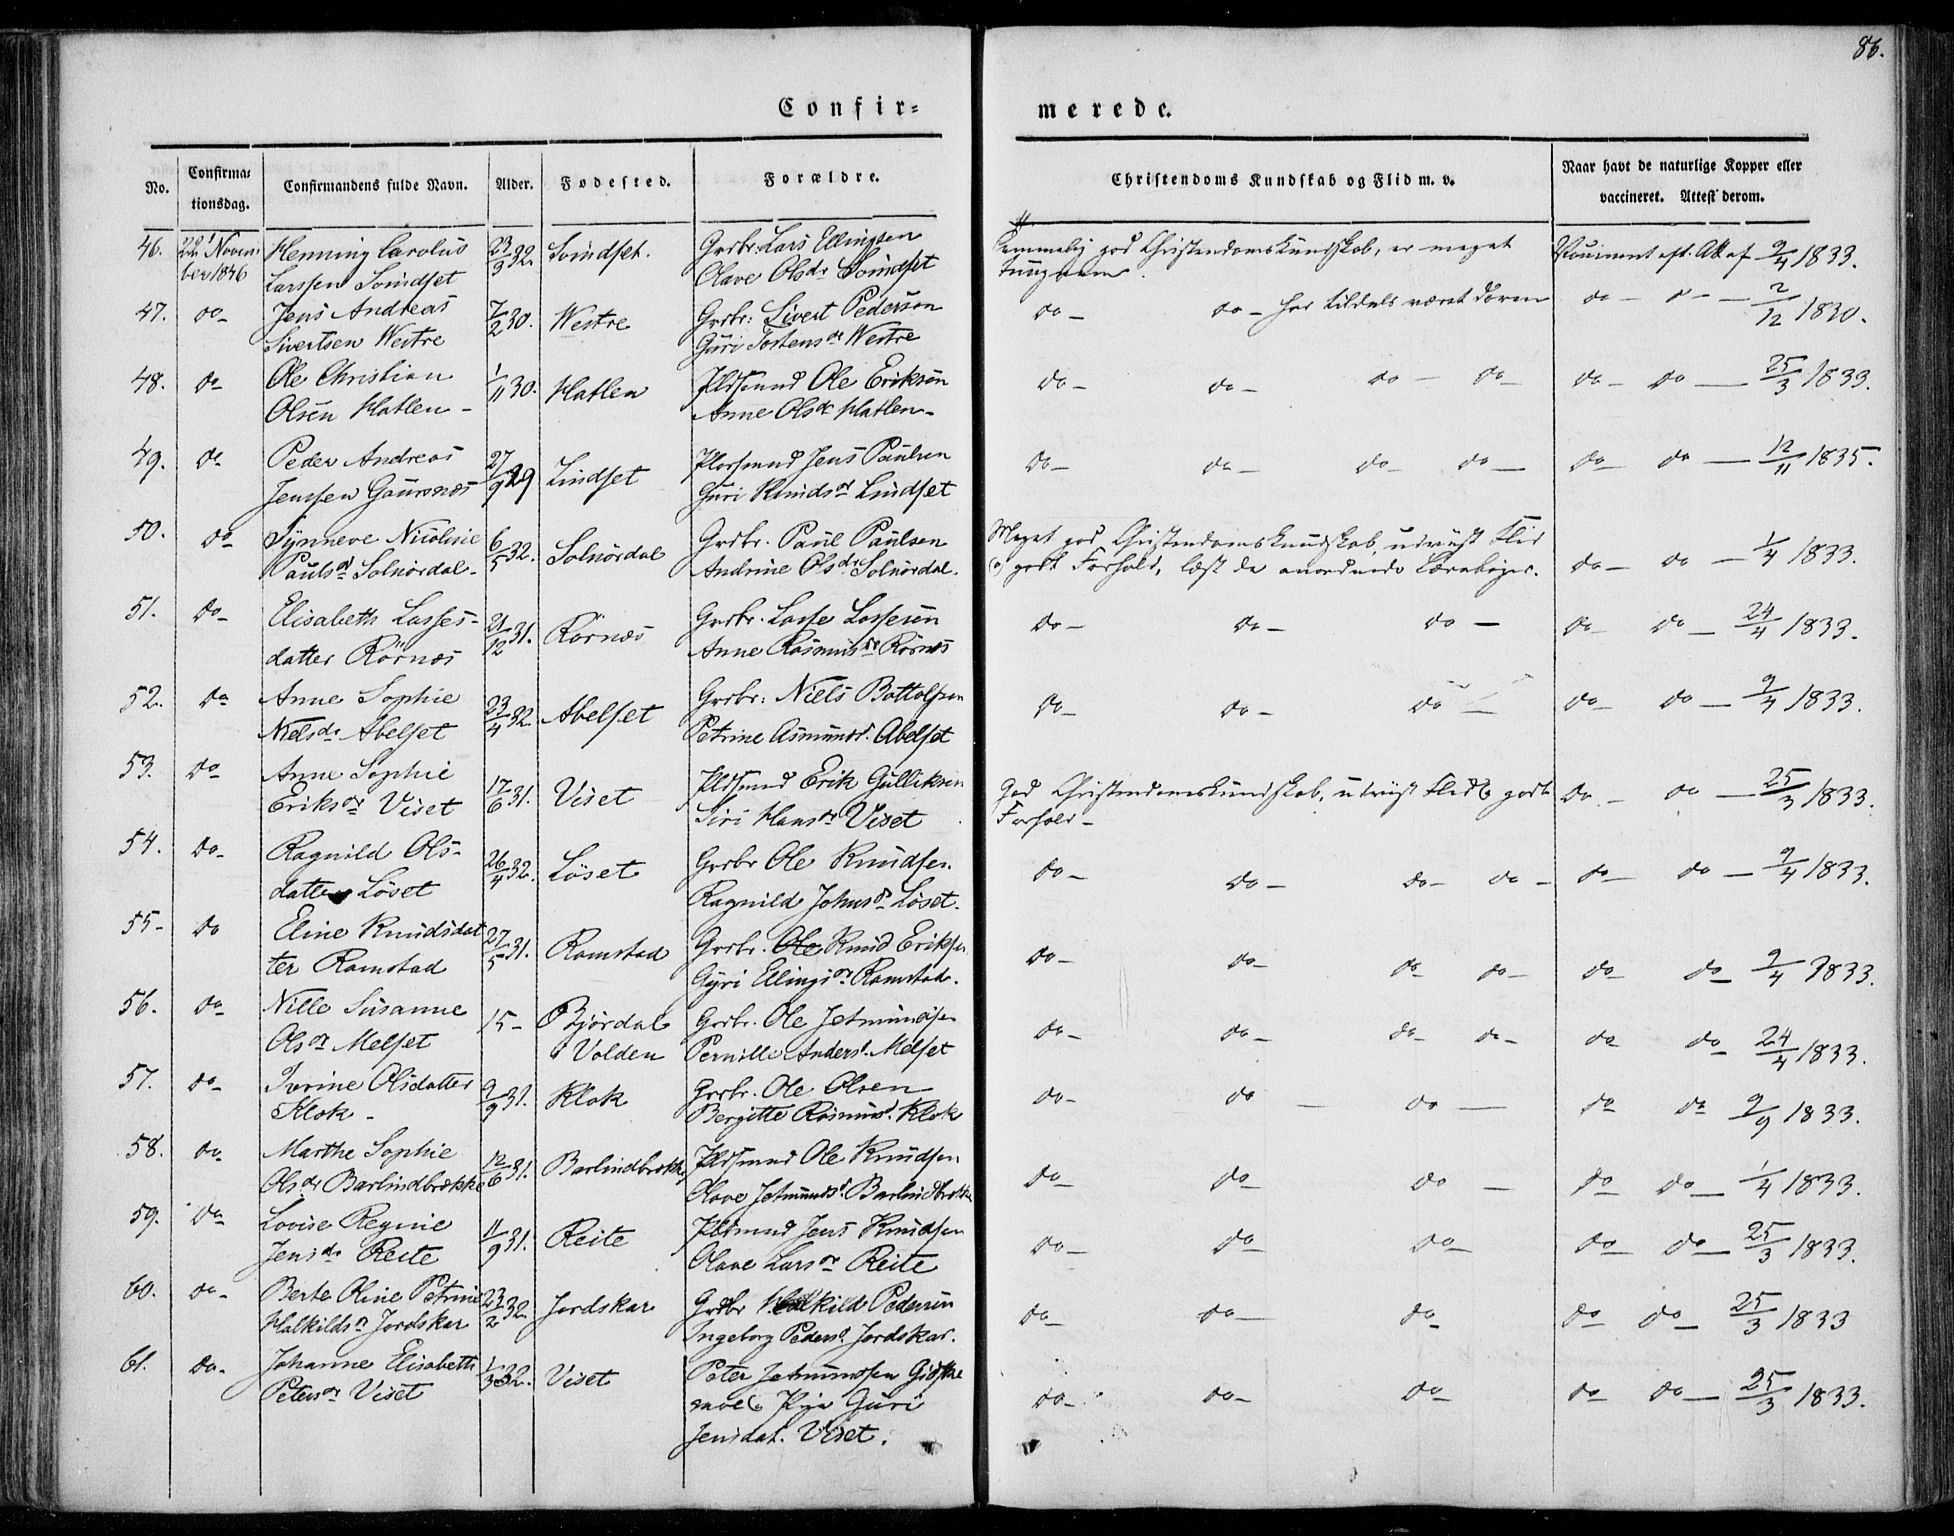 86.
Confir=
merede.
No.
Confirma=
tionsdag.
Confirmandens fulde Navn.
Alder.
Fodested.
Forældre.
Christendoms Kundskab og Flid m. v.
Naar havt de naturlige Kopper eller
vaccineret. Attest derom.
46. 22' Novem- Henning Carolus 23/3 32. Svindset. Grdbr: Lars Ellingsen Temmelig god Christendomskundskab, er meget 9/4 1833.
ber 1846 Larssen Svindset Olave Olsdr Svindset tungnem.
47. do- Jens Andreas 7/2 30. Westre Grdbr: Sivert Pedersen do- do- har tildels været doven do- d- - 2/12 1830.
Sivertsen Westre Guri Tostensdr Westre
48. do Ole Christian 1/11 30. Hatlen Pldsmnd Ole Eriksen do- do- do- do- do- do- 25/3 1833.
Olsen Hatlen- Anne Olsdr Hatlen-
49. do Peder Andreas 27/9 29 Lindset Pldsmnd Jens Paulsen do- do- do- do- do- do- 12/11 1835.
Jenssen Gaursnæs Guri Knudsdr Lindset
50. do Synneve Nicolinie 6/5 32. Solnördal Grdbr. Paul Paulsen Meget god Christendomskundskab, udviist Flid
Paulsdr Solnördal- Andrine Olsdr Solnördal. og godt Forhold, læst de anordnede Lærebøger. do- do- 1/4 1833.
51. do- Elisabeth Lasses- 21/12 31. Rörnæs Grdbr. Lasse Lassesen do- do- do- do- do- 24/4 1833.
datter Rörnæs Anne Rasmusdr Rörnæs
52. do Anne Sophie 23/4 32. Abelset Grdbr: Niels Bottolfsen do- do- do- do- do- 9/4 1833.
Nielsdr Abelset Petrine Asmundsd. Abelset
53. do Anne Sophie 17/6 31. Viset Pldsmnd Erik Gulliksen God Christendomskundskab, udviist Flid og godt do- do- 25/3 1833.
Eriksdr Viset Siri Hansdr Viset Forhold-
54. do- Ragnild Ols- 26/4 32. Löset Grdbr Ole Knudsen. do- do- do- do- do- do- 9/4 1833.
datter Löset Ragnild Johnsd. Löset.
55- do Eline Knudsdat 27/5 31. Ramstad Grdbr. Ole Knud Eriksen do- do- do- do- do- do- 9/4 1833.
ter Ramstad Gyri Ellingsdr Ramstad.
56. do Nille Susanne 15- Björdal Grdbr. Ole Jetmundsen do- do- do- do- do do 24/4 1833.
Olsdr Melset i Volden Pernille Andersd. Melset
57. do- Iverine Olsdatter 9/9 31. Klok Grdbr. Ole Olsen do- do- do- do do 9/9 1833.
Klok- Bergitte Rasmusd. Klok
58. do- Marthe Sophie 12/6 31. Barlindbrække Pldsmnd Ole Knudsen do- do do- do do- 1/4 1833.
Olsdr Barlindbrække Olave Jetmundsd. Barlindbrække
59. do Lovise Regine 11/9 31. Reite Pldsmnd Jens Knudsen do- do do- do- do- 25/3 1833.
Jensdr Reite Olave Larsdr Reite
60. do- Berte Oline Petrine 23/2 32. Jordskar Grdbr Halkild Pedersen do- do- do- do- do- 25/3 1833
Halkildsdr Jordskar Ingeborg Pedersd. Jordskar.
61. do- Johanne Elisabeth 1/3 32. Viset Peter Jetmundsen Gidske do- do- do do do- 25/3 1833.
Petersdr Viset Pige Guri
Jensdat. Viset.